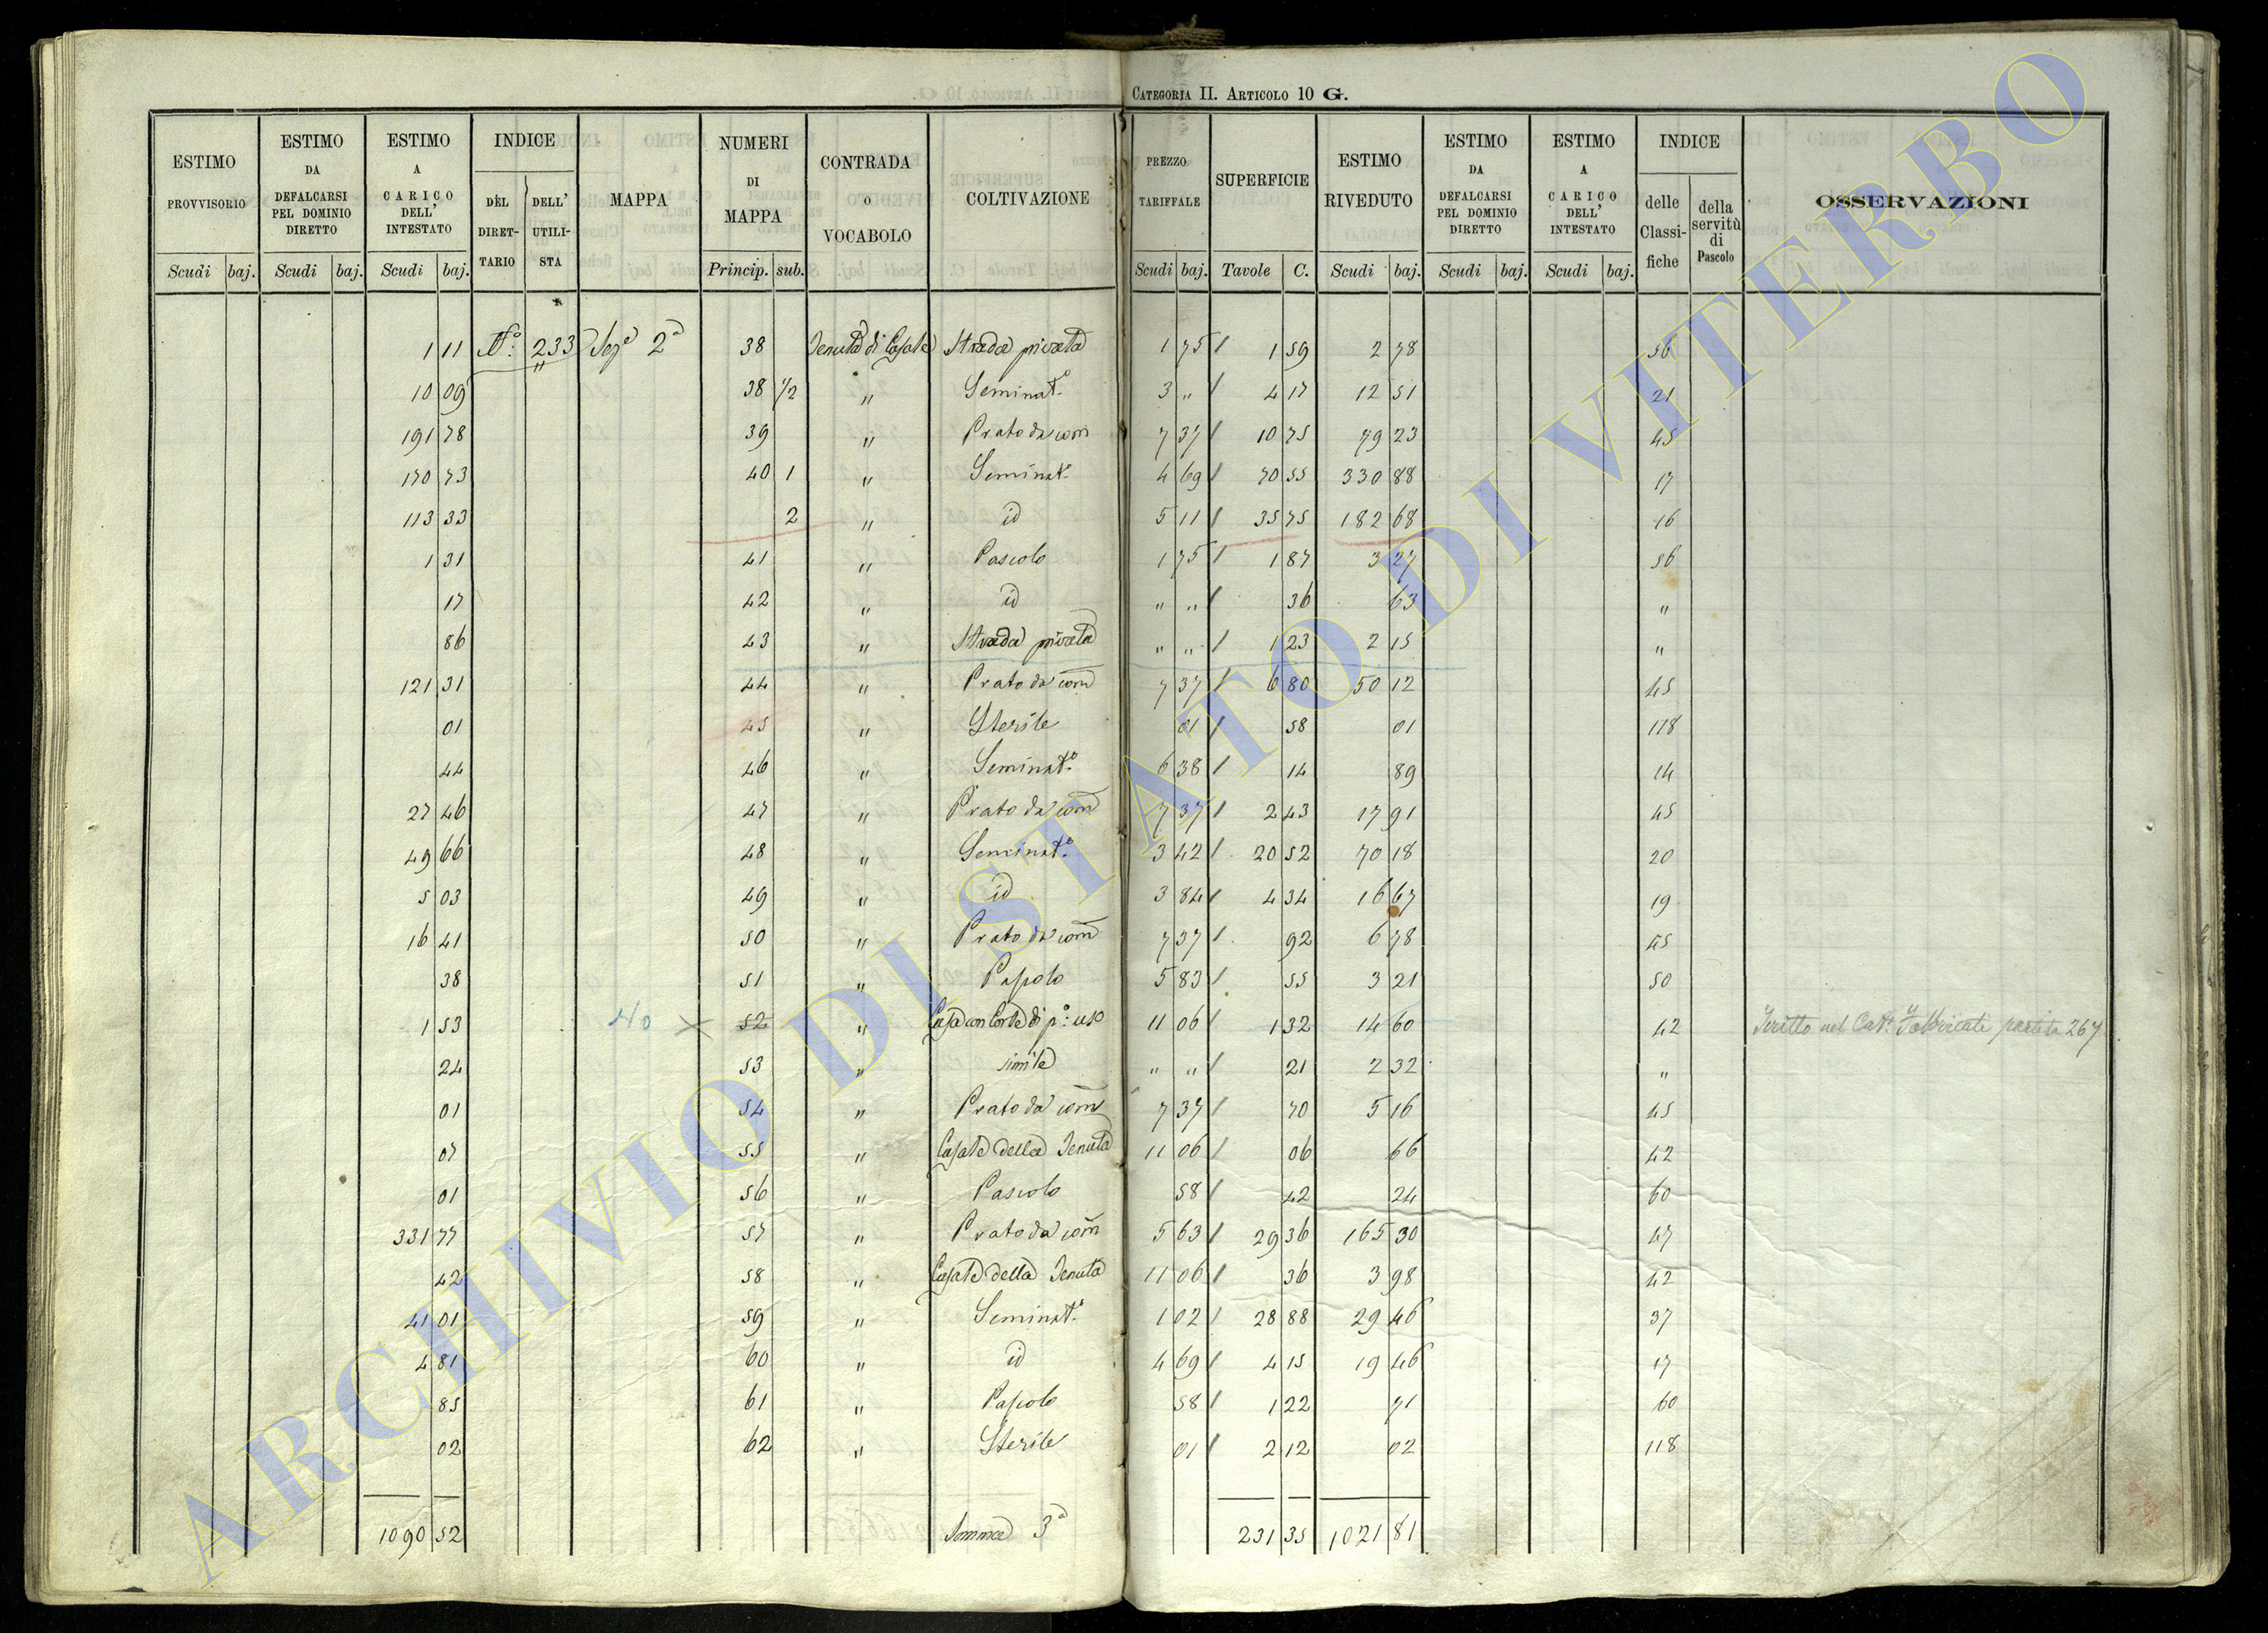 CATEGORIA II. ARTICOLO 10 G.
ESTIMO PROVVISORIO Scudi baj.
ESTIMO DA DEFALCARSI PEL DOMINIO DIRETTO Scudi baj.
ESTIMO A CARICO DELL' INTESTATO Scudi baj.
INDICE DEL DIRET-TARIO DELL' UTILI-STA
MAPPA
NUMERI DI MAPPA Princip. sub.
CONTRADA O VOCABOLO
COLTIVAZIONE
PREZZO TARIFFALE Scudi baj.
SUPERFICIE Tavole C.
ESTIMO RIVEDUTO Scudi baj.
ESTIMO DA DEFALCARSI PEL DOMINIO DIRETTO Scudi baj.
ESTIMO A CARICO DELL' INTESTATO Scudi baj.
INDICE delle Classi-fiche della servitù di Pascolo
OSSERVAZIONI
1 11 N.º 233 Sezª 2ª 38 Tenuta di Casale Strada privata 1 75 / 1 59 2 78 56
10 09 38 1/2 " Seminatº 3 " / 4 17 12 51 21
191 78 39 " Prato da com 7 37 / 10 75 79 23 45
170 73 40 1 " Seminatº 4 69 / 70 55 330 88 17
113 33 2 " id 5 11 / 35 75 182 68 16
1 31 41 " Pascolo 1 75 / 1 87 3 27 56
17 42 " id " " / 36 63 "
86 43 " Strada privata " " / 1 23 2 15 "
121 31 44 " Prato da com 7 37 / 6 80 50 12 45
01 45 " Sterile 01 / 58 01 118
44 46 " Seminatº 6 38 / 14 89 14
27 46 47 " Prato da com 7 37 / 2 43 17 91 45
49 66 48 " Seminatº 3 42 / 20 52 70 18 20
5 03 49 " id 3 84 / 4 34 16 67 19
16 41 50 " Prato da com 7 37 / 92 6 78 45
38 51 " Pascolo 5 83 / 55 3 21 50
1 53 No × 52 " Casa con Corte di pº: uso 11 06 / 1 32 14 60 42 Scritto nel Catº Fabbricati partita 267
24 53 " simile " " / 21 2 32 "
01 54 " Prato da com 7 37 / 70 5 16 45
07 55 " Casale della Tenuta 11 06 / 06 66 42
01 56 " Pascolo 58 / 42 24 60
331 77 57 " Prato da com 5 63 / 29 36 165 30 47
42 58 " Casale della Tenuta 11 06 / 36 3 98 42
41 01 59 " Seminatº 1 02 / 28 88 29 46 37
4 81 60 " id 4 69 / 4 15 19 46 17
85 61 " Pascolo 58 / 1 22 71 60
02 62 " Sterile 01 / 2 12 02 118
1090 52 Somma 3ª 231 35 1021 81
ARCHIVIO DI STATO DI VITERBO